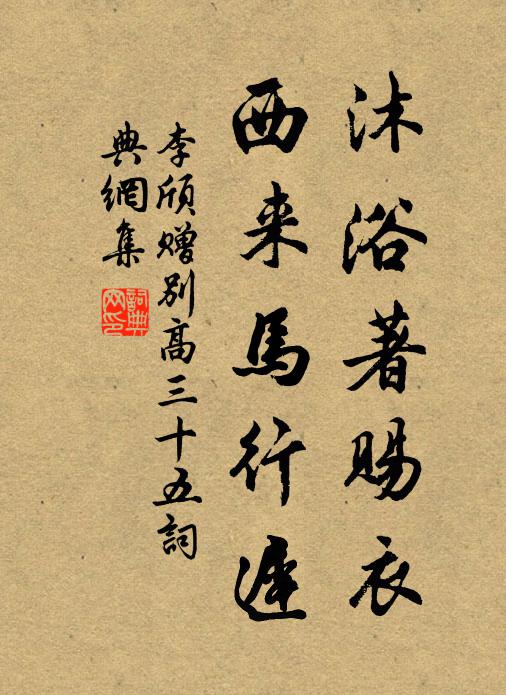 沐浴著賜衣
西来馬行遲
李頎贈別高三十五詞
典網集
詞典网印